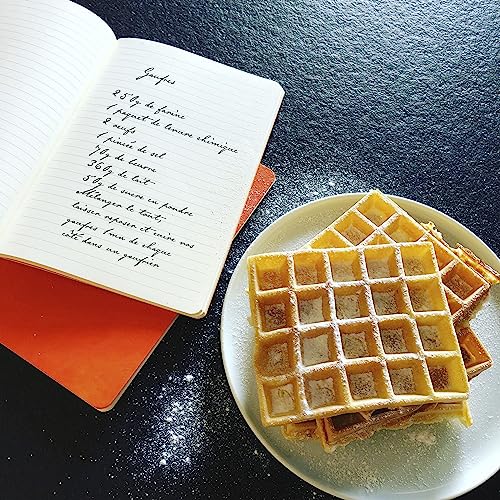 Gaufres
250g de farine
1 paquet de levure chimique
2 oeufs
1 pincé de sel
75g de beurre
360g de lait
50g de sucre en poudre
Mélanger le tout,
laisser reposer et cuire vos
gaufres 5min de chaque
côté dans un gaufrier